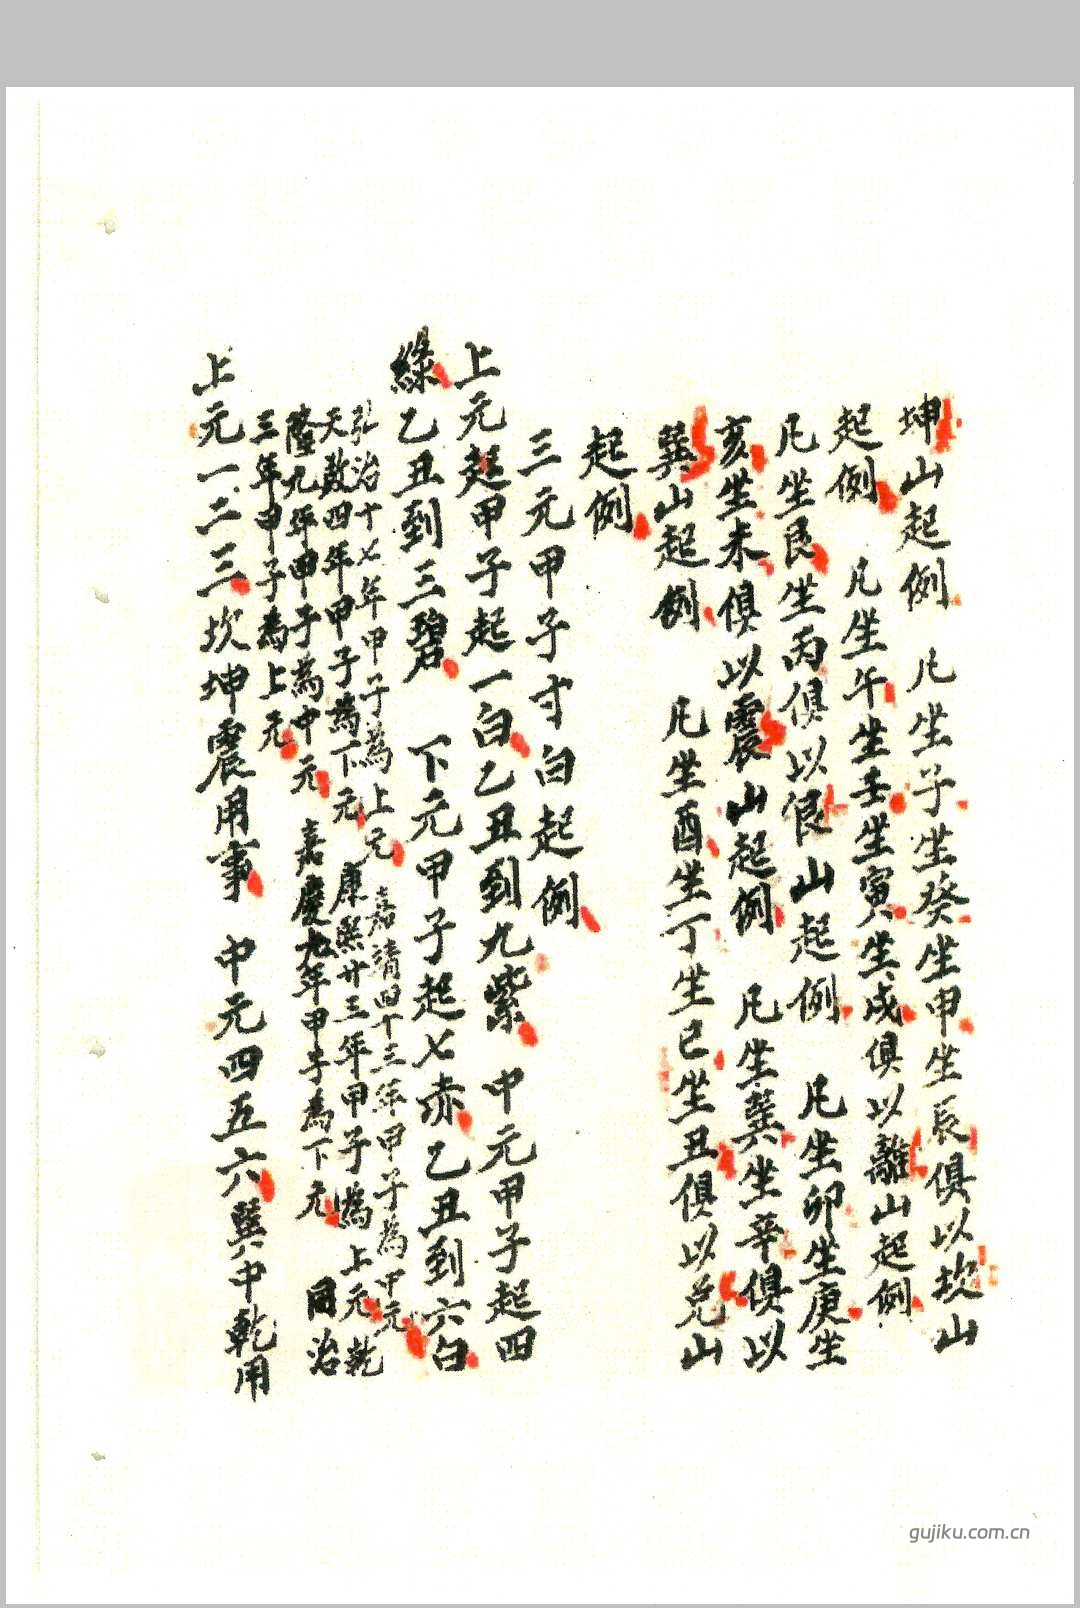 坤山起例　凡坐子坐癸坐申坐辰俱以坎山
起例　凡坐午坐壬坐寅坐戍俱以離山起例
凡坐艮坐丙俱以艮山起例　凡坐卯坐庚坐
亥坐未俱以震山起例　凡坐巽坐辛俱以
巽山起例　凡坐酉坐丁坐巳坐丑俱以兌山
起例
三元甲子寸白起例
上元起甲子起一白乙丑到九紫　中元甲子起四
綠乙丑到三碧　下元甲子起七赤乙丑到六白
弘治十七年甲子為上元　嘉靖四十三年甲子為中元
天啟四年甲子為下元　康熙廿三年甲子為上元　乾
隆九年甲子為中元　嘉慶九年甲子為下元　同治
三年甲子為上元
上元一二三坎坤震用事　中元四五六巽中乾用
gujiku.com.cn